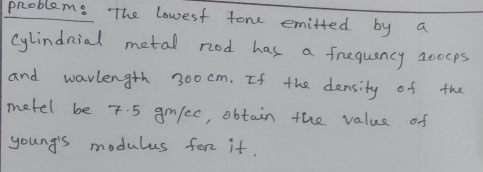 problem: The Lowest tone emitted by a
Cylindrial metal rod has a frequency 200cps
and wavlength 300 cm. If the density of the
metel be 7.5 gm/cc, obtain the value of
young's modulus for it.